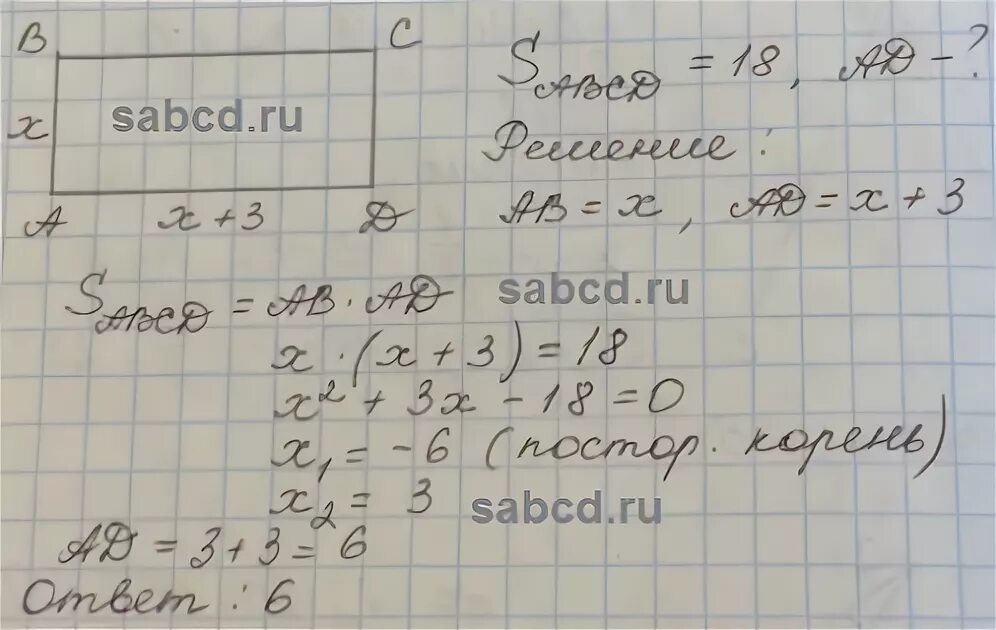 B C
x
sabcd.ru
A x + 3 D
S_ABCD = 18, AD - ?
Решение :
AB = x, AD = x + 3
S_ABCD = AB · AD
sabcd.ru
x · (x + 3) = 18
x² + 3x - 18 = 0
x₁ = -6 (постор. корень)
x₂ = 3
sabcd.ru
AD = 3 + 3 = 6
Ответ : 6